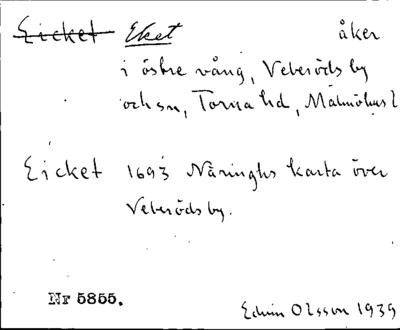 Eicket Eket åker
i östre vång, Veberöds by
och sn, Torna hd, Malmöhus l
Eicket 1693 Näringhs karta över
Veberöds by.
Nr 5855.
Edwin Olsson 1939